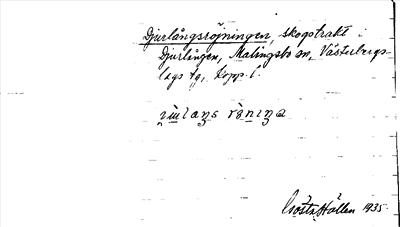 Djurlångsröjningen, skogstrakt i
Djurlången, Malingsbo sn, Västerbergs-
lags tg, Kopp. l.
Gösta Hallen 1935.